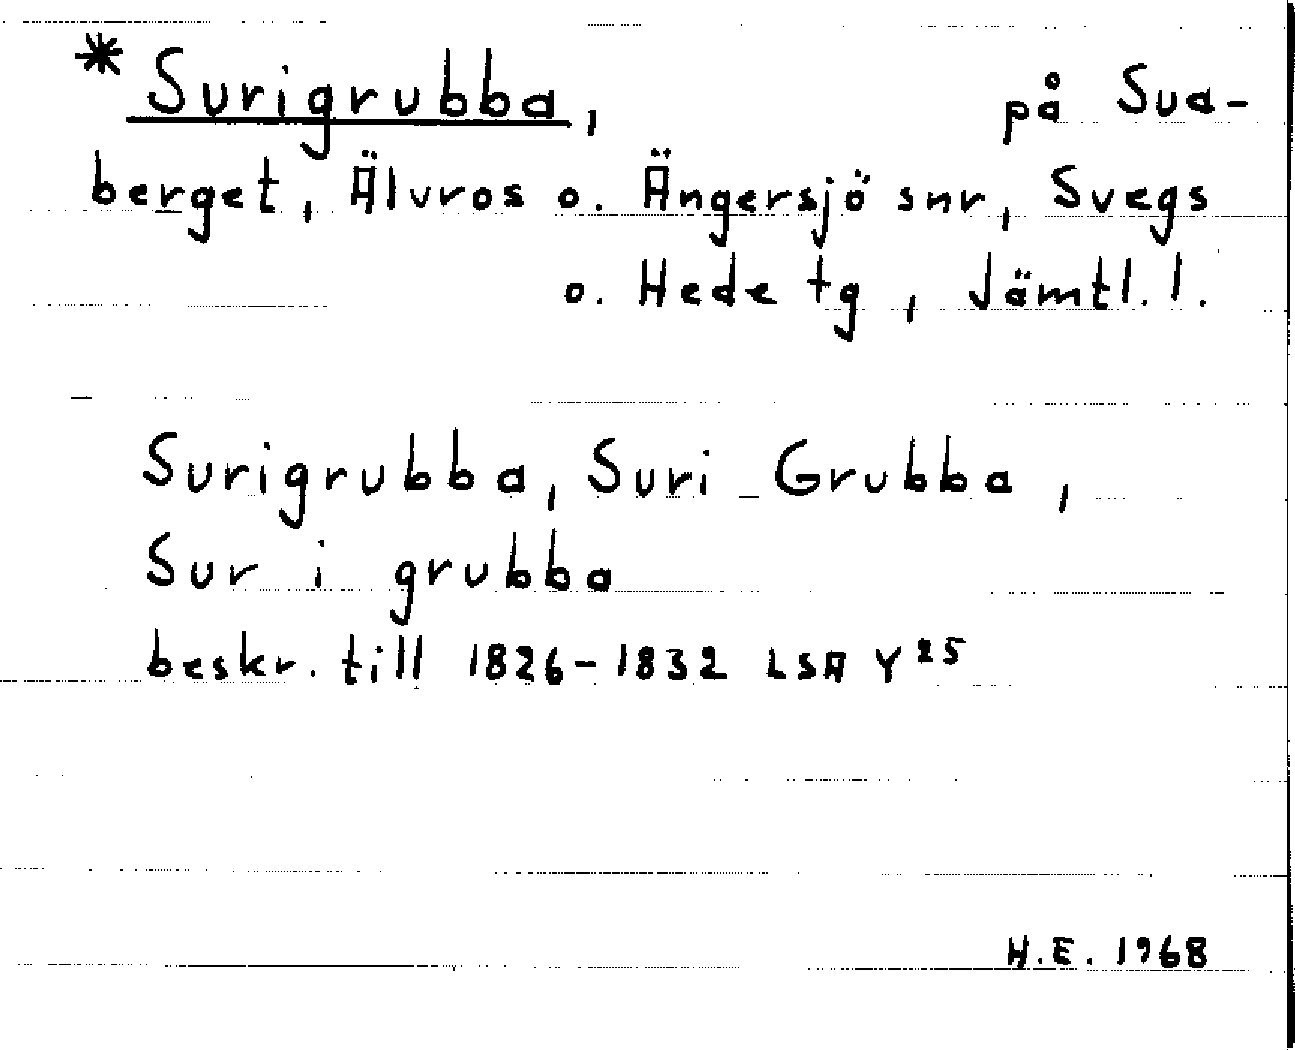 * Surigrubba, på Sua-
berget, Älvros o. Ängersjö snr, Svegs
o. Hede tg, Jämtl. l.
Surigrubba, Suri_Grubba,
Sur i grubba
beskr. till 1826-1832 LSA Y²⁵
H.E. 1968